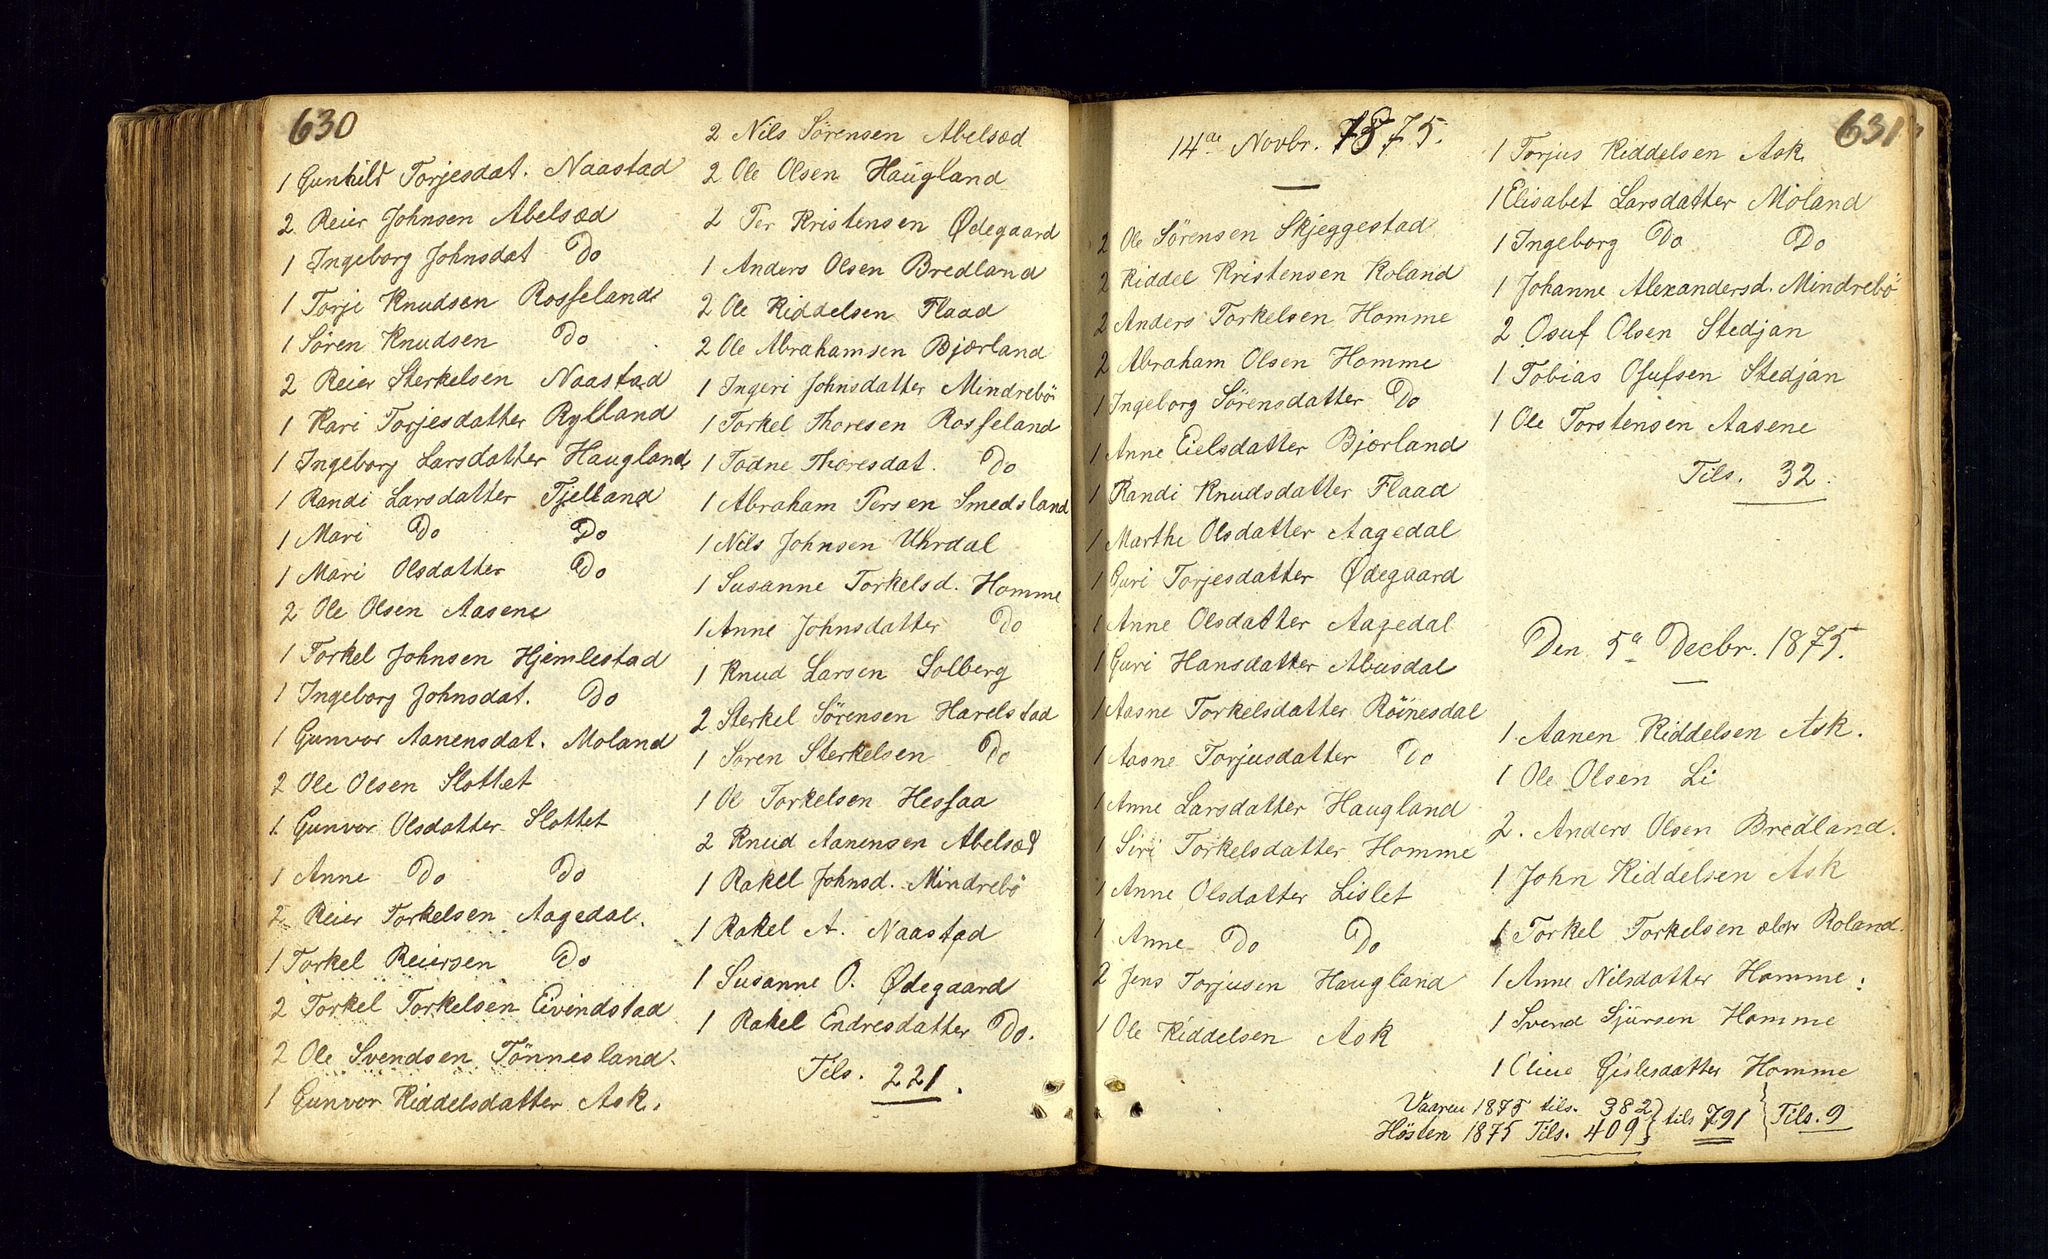 630
1 Gunhild Torjesdat. Naastad
2 Reier Johnsen Abelsæd
1 Ingeborg Johnsdat Do
1 Torje Knudsen Rosseland
1 Søren Knudsen Do
2 Reier Sterkelsen Naastad
1 Kari Torjesdatter Rylland
1 Ingeborg Larsdatter Haugland
1 Randi Larsdatter Tjelland
1 Mari Do Do
1 Mari Olsdatter Do
2 Ole Olsen Aasene
1 Torkel Johnsen Hjemlestad
1 Ingeborg Johnsdat. Do
1 Gunvor Aanensdat. Moland
2 Ole Olsen Slottet
1 Gunvor Olsdatter Slottet
1 Anne Do Do
2 Reier Torkelsen Aagedal.
1 Torkel Reiersen Do
2 Torkel Torkelsen Eivindstad
2 Ole Svendsen Tönnesland.
1 Gunvor Kiddelsdatter Ask.
2 Nils Sørensen Abelsæd
2 Ole Olsen Haugland
2 Per Kristensen Ødegaard
1 Anders Olsen Bredland
2 Ole Kiddelsen Flaad
2 Ole Abrahamsen Bjærland
1 Ingeri Johnsdatter Mindrebö
1 Torkel Thoresen Rosseland
1 Todne Thoresdat. Do
1 Abraham Persen Smedsland
1 Nils Johnsen Uhrdal
1 Susanne Torkelsd. Homme
1 Anne Johnsdatter Do
1 Knud Larsen Solberg
2 Sterkel Sörensen Harelstad
1 Sören Sterkelsen Do
1 Ol Torkelsen Hessaa
2 Knud Aanensen Abelsæd
1 Rakel Johnsd. Mindrebö
1 Rakel A. Naastad
1 Susanne O. Ødegaard
1 Rakel Endresdatter Do.
Tils. 221.
631
14de Novbr. 1875.
2 Ole Sørensen Skjeggestad
2 Kiddel Kristensen Roland
2 Anders Torkelsen Homme
2 Abraham Olsen Homme
1 Ingeborg Sörensdatter Do
1 Anne Eielsdatter Bjærland
1 Randi Knudsdatter Flaad
1 Marthe Olsdatter Aagedal
1 Guri Torjesdatter Ødegaard
1 Anne Olsdatter Aagedal
1 Guri Hansdatter Abusdal
1 Aasne Torkelsdatter Röinesdal
1 Aasne Torjusdatter Do
1 Anne Larsdatter Haugland
1 Siri Torkelsdatter Homme
1 Anne Olsdatter Lislet
1 Anne Do Do
2 Jens Torjusen Haugland
1 Ole Kiddelsen Ask
1 Torjus Kiddelsen Ask.
1 Elisabet Larsdatter Moland
1 Ingeborg Do Do
1 Johanne Alexandersd. Mindrebö
2 Osuf Olsen Stedjan
1 Tobias Osufsen Stedjan
1 Ole Torstensen Aasene
Tils. 32.
Den 5te Decbr. 1875.
1 Aanen Kiddelsen Ask.
1 Ole Olsen Li
2. Anders Olsen Bredland.
1 John Kiddelsen Ask
1 Torkel Torkelsen Roland.
1 Anne Nilsdatter Homme.
1 Svend Sjursen Homme
1 Gislesdatter Homme
Tils. 9
Vaaren 1875 tils. 382
Hösten 1875 Tils. 409 } tils 791